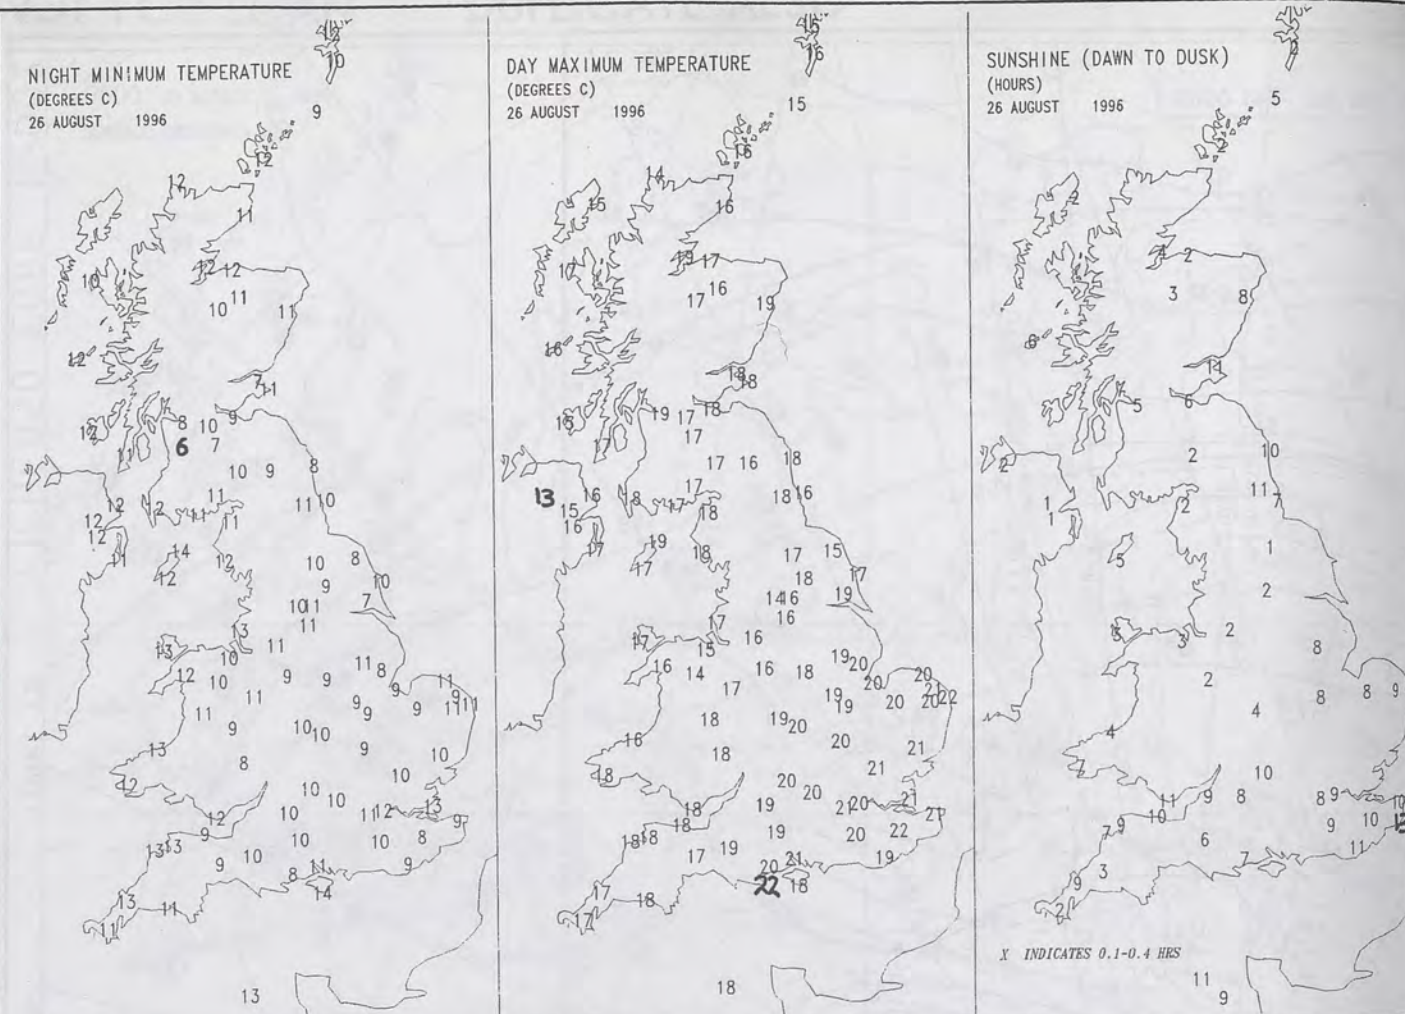 NIGHT MINIMUM TEMPERATURE
(DEGREES C)
26 AUGUST 1996
10
9
12
12
11
12 12
10
11
10
11
12
7
11
8 10 9
12
6 7
11
10 9 8
11
12 12 11 10
12 11 11
12
11 14 12 10 8
12
9 10
10 11 7
11
13
13 11
10 11
12 10 9 9 8 11
9 9 11
11 9 9 11
11
9 10 10
13 9 10
8
12 10 10
10 13
12 10 11 12 9
9
13 13 10 10 8
9 10 11 9
8
13 14
11
11
13
DAY MAXIMUM TEMPERATURE
(DEGREES C)
26 AUGUST 1996
15
16
15
16
14
15 16
17 19 17
16
17 19
16
18
18
15 19 17 18
17 17
17 18 18
17
13 16 18 17 18 16
15 18
16
17 19 18 17 15
17 18 17
14 16 19
17 16
17 16
15 19
16 14 16 18 20 20
17 20 21 22
19 19 20 20
18 19 20
16 20 21
18
18 21
20 20
18 19 21 20 21 21
18 18 18 19 20 22
17 19 21 19
20
17 22 18
18
17
18
SUNSHINE (DAWN TO DUSK)
(HOURS)
26 AUGUST 1996
2
5
2
2
4 2
3 8
6
11
5 6
2
2 10
1 2 11 7
1
5 1
2
3 3 2
8
2 8 8 9
4
4
7 10 2
11 9 8 8 9 10
7 9 10 6 9 10 13
3 7 11
9
2
X INDICATES 0.1-0.4 HRS
11
9